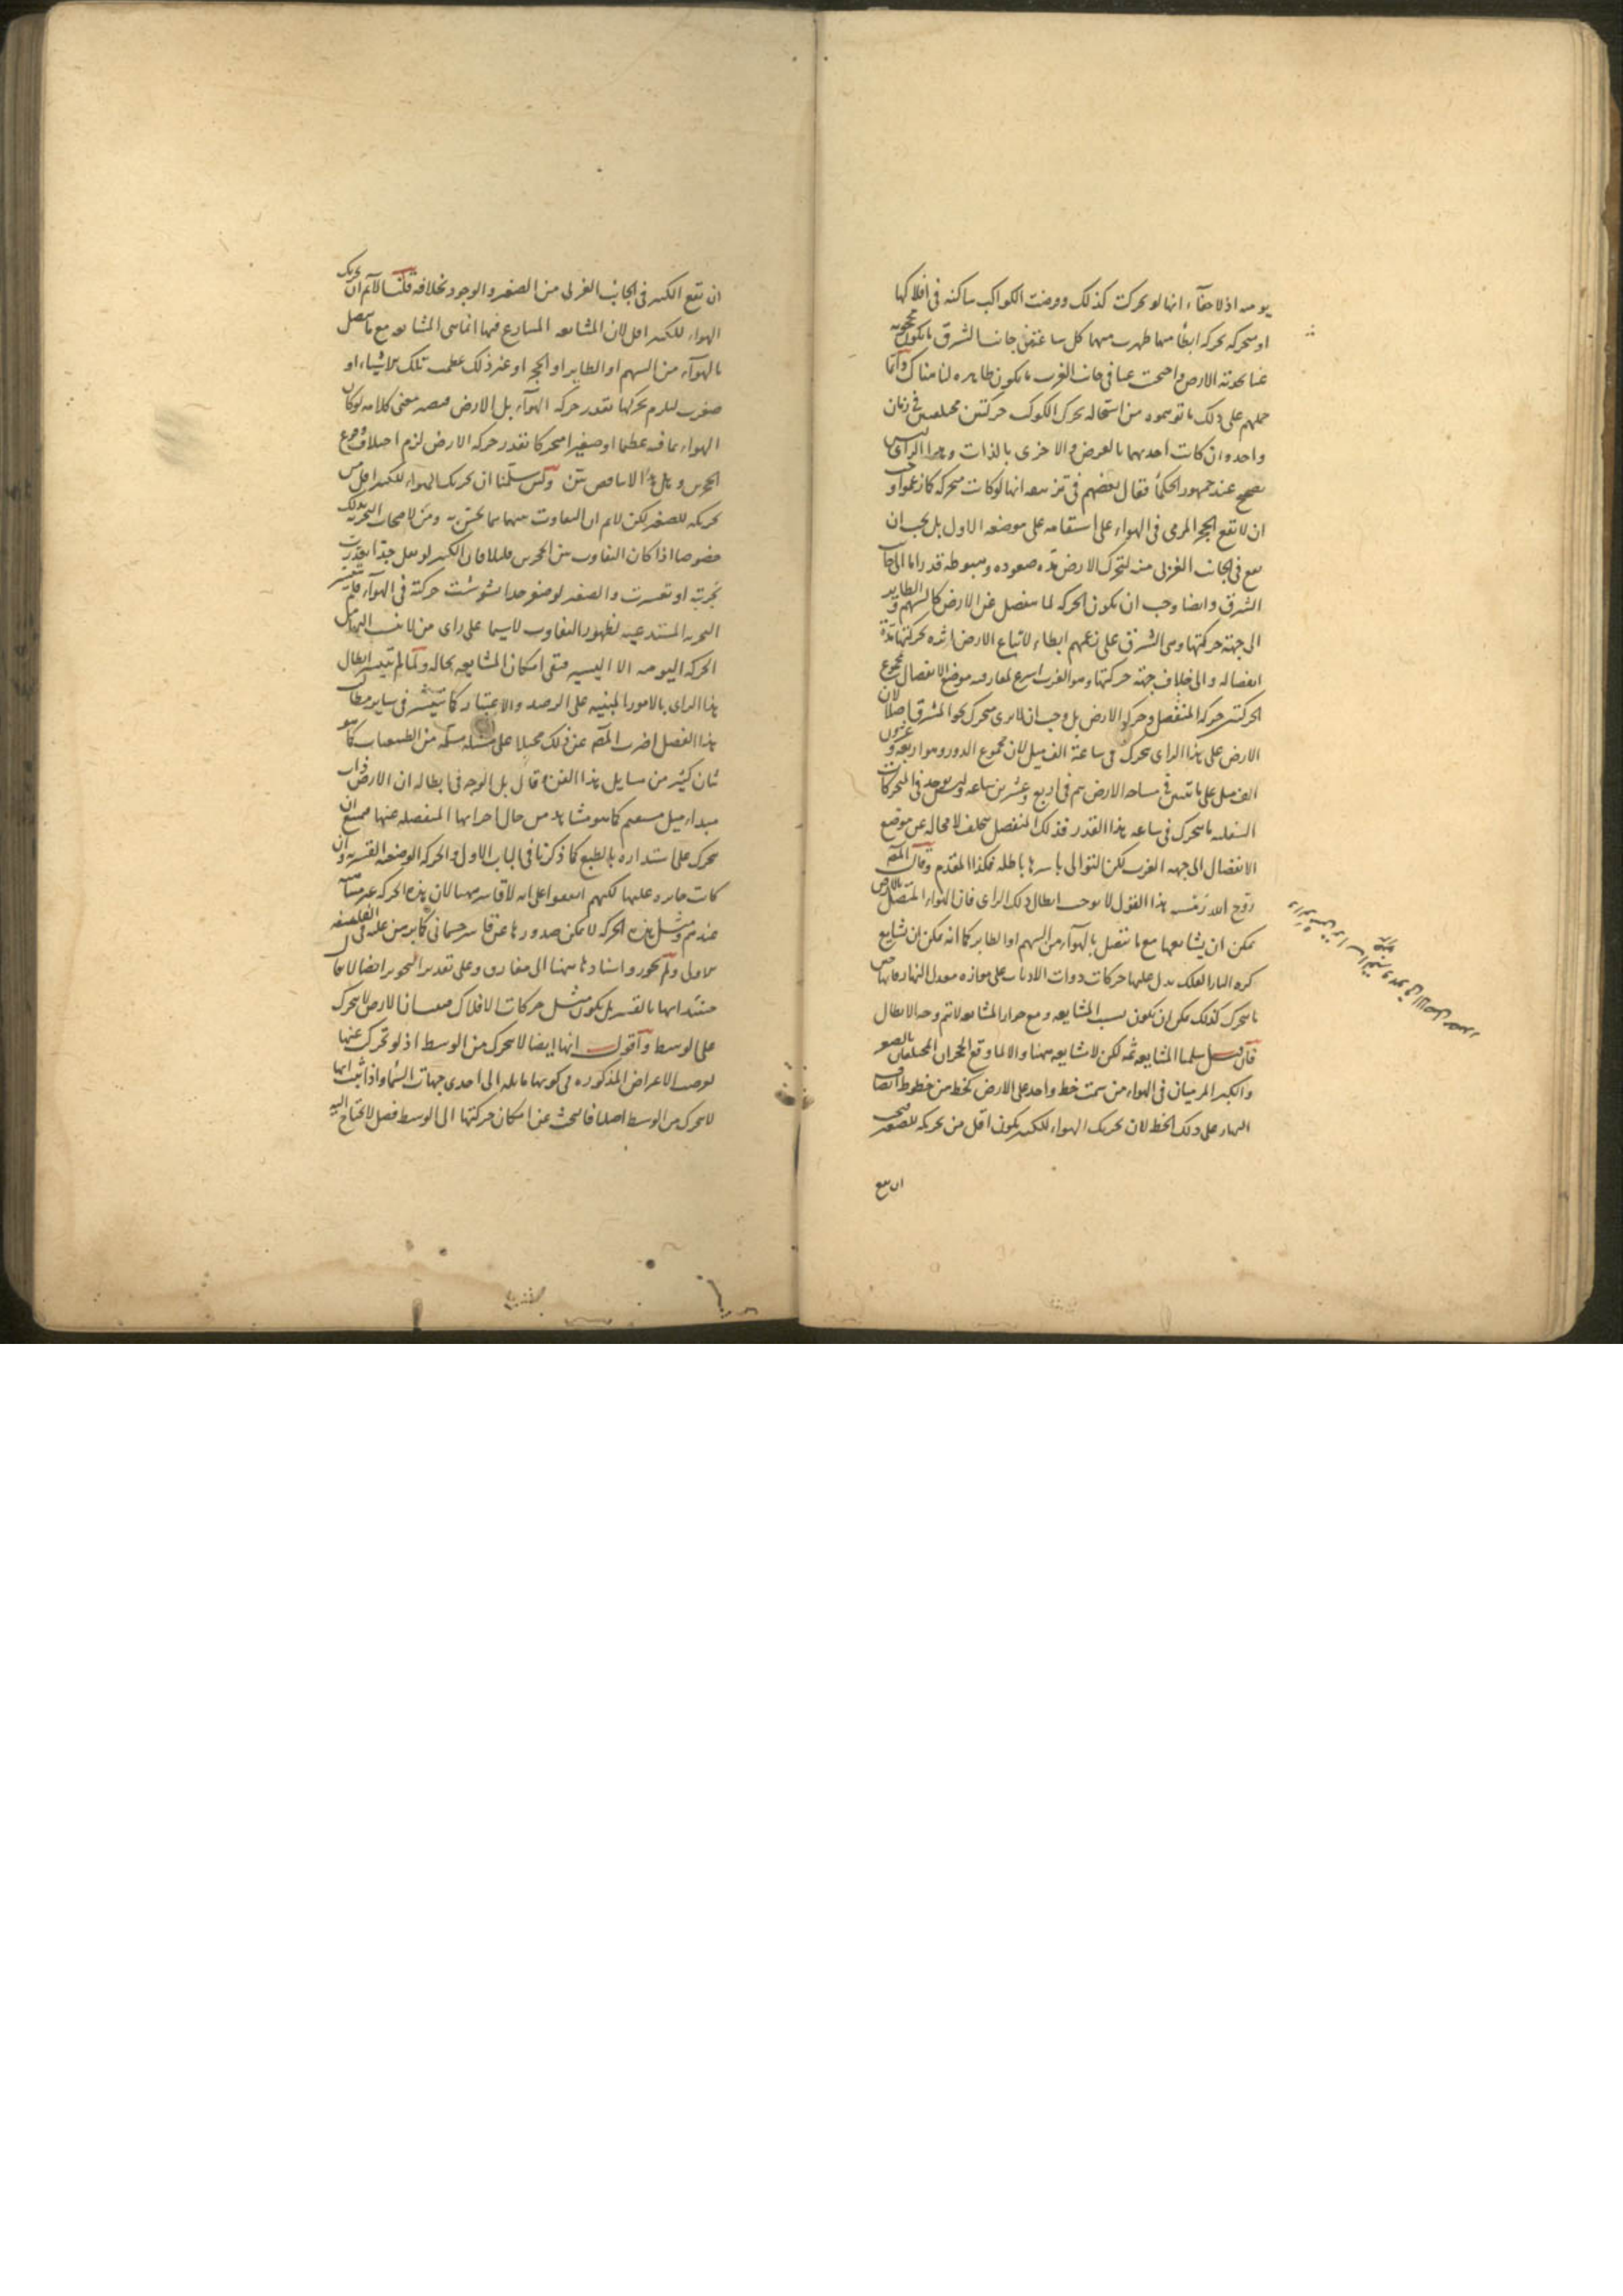 يوميه اذ لا خفاء انها لو تحركت كذلك وفرضت الكواكب ساكنة في افلاكها
او متحركة بحركة ابطأ منها ظهرت منها كل ساعة من جانب الشرق ما يكون محجوبه
عنا بحدبة الارض واحتجبت عنا في جانب الغرب ما يكون ظاهره لنا هناك وانما
حملهم على ذلك ما توهموه من استحالة تحرك الكوكب حركتين مختلفتين في زمان
واحد وان كانت احديهما بالعرض والاخرى بالذات وهذا الراى ليس
بصحيح عند جمهور الحكما فقال بعضهم في تزييفه انها لو كانت متحركة كما زعموا وجب
ان لا تقع الحجر المرمى في الهواء على استقامه على موضعه الاول بل يجب ان
يقع في الجانب الغربى منه لتحرك الارض مدة صعوده وهبوطه قدرا ما الى جانب
الشرق وايضا وجب ان يكون الحركة لما ينفصل عن الارض كالسهم والطاير
الى جهة حركتها وهى الشرق على زعمهم ابطاء لاتباع الارض اشده بحركتها مدة
انفصاله والى خلاف جهة حركتها وهو الغرب اسرع لمفارقه موضع الانفصال بمجموع
الحركتين حركة المنفصل وحركة الارض بل وجب ان لا يرى متحرك نحو المشرق اصلا لان
الارض على هذا الراى تتحرك في ساعة الف ميل لان مجموع الدور وهو اربعة وعشرون
الف ميل على ما تبين في مساحة الارض يتم في اربع وعشرين ساعه وليس يوجد في المتحركات
السفليه ما يتحرك في ساعه هذا القدر فذلك المنفصل يتخلف لا محاله عن موضع
الانفصال الى جهة الغرب لكن التوالى باسرها باطله فكذا المقدم وقال المص
روح الله رمسه هذا القول لا يوجب ابطال ذلك الراى فان الهواء المتصل بالارض
يمكن ان يشايعها مع ما يتصل بالهواء من السهم او الطاير كما انه يمكن ان تشايع
كره النار الفلك يدل عليها حركات ذوات الاذناب على موازه معدل النهار فانها
ما يتحرك كذلك يمكن ان يكون بسبب المشايعه ومع جواز المشايعه لا يتم وجه الابطال
فان قيل سلمنا المشايعه ثمه لكن لا مشايعه ههنا والا لما وقع الحجران المختلفان بالصغر
والكبر المرميان في الهواء من سمت خط واحد على الارض كخط من خطوط انصاف
النهار على ذلك الخط لان تحريك الهواء للكبير يكون اقل من تحريكه للصغير فيجب
ان يقع
ان يقع الكبير في الجانب الغربى من الصغير والوجود بخلافه قلنا لا نم ان تحريك
الهواء للكبير اقل لان المشايعه المتنازع فيها انما هى المشايعه مع ما يتصل
بالهواء من السهم او الطاير او الحجر او غير ذلك عظمت تلك الاشياء او
صغرت ليلزم تحركها بقدر حركة الهواء بل الارض فيصير معنى كلامه لو كان
الهواء بما فيه عظيما او صغيرا متحركا بقدر حركة الارض لزم اختلاف وقوع
الحجرين وهل هذا الا تناقض بين ولئن سلمنا ان تحريك الهواء للكبير اقل من
تحريكه للصغير لكن لا نم ان التفاوت بينهما مما يحس به ومن لاصحاب التجربه بذلك
خصوصا اذا كان التفاوت بين الحجرين قليلا فان الكبير لو ثقل جدا تعذرت
تجربته او تعسرت والصغير لو صغر جدا تشوشت حركته في الهواء فلم يتيسر
التجربه المستدعيه لظهور التفاوت لاسيما على راى من لا ينسب اليها من
الحركة اليوميه الا اليسير فبقى امكان المشايعه بحاله ولما لم يتيسر ابطال
هذا الراى بالامور المبنيه على الرصد والاعتبار كما يتيسر في ساير مطالب
هذا الفصل اضرب المص عن ذلك محيلا على مسئله مسلمه من الطبيعيات كما هو
شان كثير من مسايل هذا الفن وقال بل الوجه في ابطاله ان الارض ذات
مبداء ميل مستقيم كما هو مشاهد من حال اجزايها المنفصله عنها فيمتنع ان
تتحرك على استداره بالطبع كما ذكرنا في الباب الاول والحركة الوضعيه القسريه وان
كانت جايزه عليها لكنهم اتفقوا على انه لا قاسر ههنا لان هذه الحركة غير متناهيه
عندهم ومثل هذه الحركة لا يمكن صدورها عن قاسر جسمانى كما برهن عليه في الفلسفه
الاولى ولم يجوزوا اسنادها ههنا الى مفارق وعلى تقدير التجويز ايضا لا يقال
استدامها بالقسر بل يكون مثل حركات الافلاك فيثبت ان الارض لا تتحرك
على الوسط واقول انها ايضا لا تتحرك من الوسط اذ لو تحرك عنها
لعرضت الاعراض المذكوره في كونها مايله الى احدى جهات السماء واذا ثبت انها
لا تتحرك من الوسط اصلا فالبحث عن امكان حركتها الى الوسط فصل لا يحتاج اليه